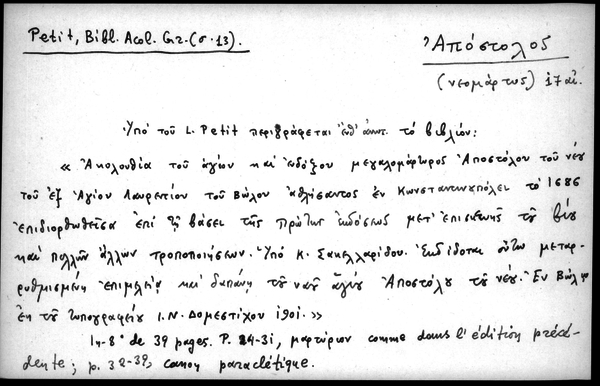 Petit, Bibl. Acol. Gr. (σ. 13).
Ἀπόστολος
(νεομάρτυς) 17 αἰ.
Ὑπὸ τοῦ L. Petit περιγράφεται τὸ βιβλίον:
« Ἀκολουθία τοῦ ἁγίου καὶ ἐνδόξου μεγαλομάρτυρος Ἀποστόλου τοῦ νέου
τοῦ ἐξ Ἁγίου Λαυρεντίου τοῦ Βώλου ἀθλήσαντος ἐν Κωνσταντινουπόλει τὸ 1686
ἐπιδιορθωθεῖσα ἐπὶ τῇ βάσει τῆς πρώτης ἐκδόσεως μετ' ἐπισκέψεως τοῦ βίου
καὶ πολλῶν ἄλλων τροποποιήσεων. Ὑπὸ Κ. Σακελλαρίδου. Ἐκδίδοται οὕτω μεταρ-
ρυθμισμένη ἐπιμελείᾳ καὶ δαπάνῃ τοῦ ναοῦ ἁγίου Ἀποστόλου τοῦ νέου. Ἐν Βώλῳ
ἐκ τοῦ τυπογραφείου Ι. Ν. Δομεστίχου 1901. »
In-8° de 39 pages. P. 24-31, μαρτύριον comme dans l'édition précé-
dente; p. 32-39, canon paraclétique.